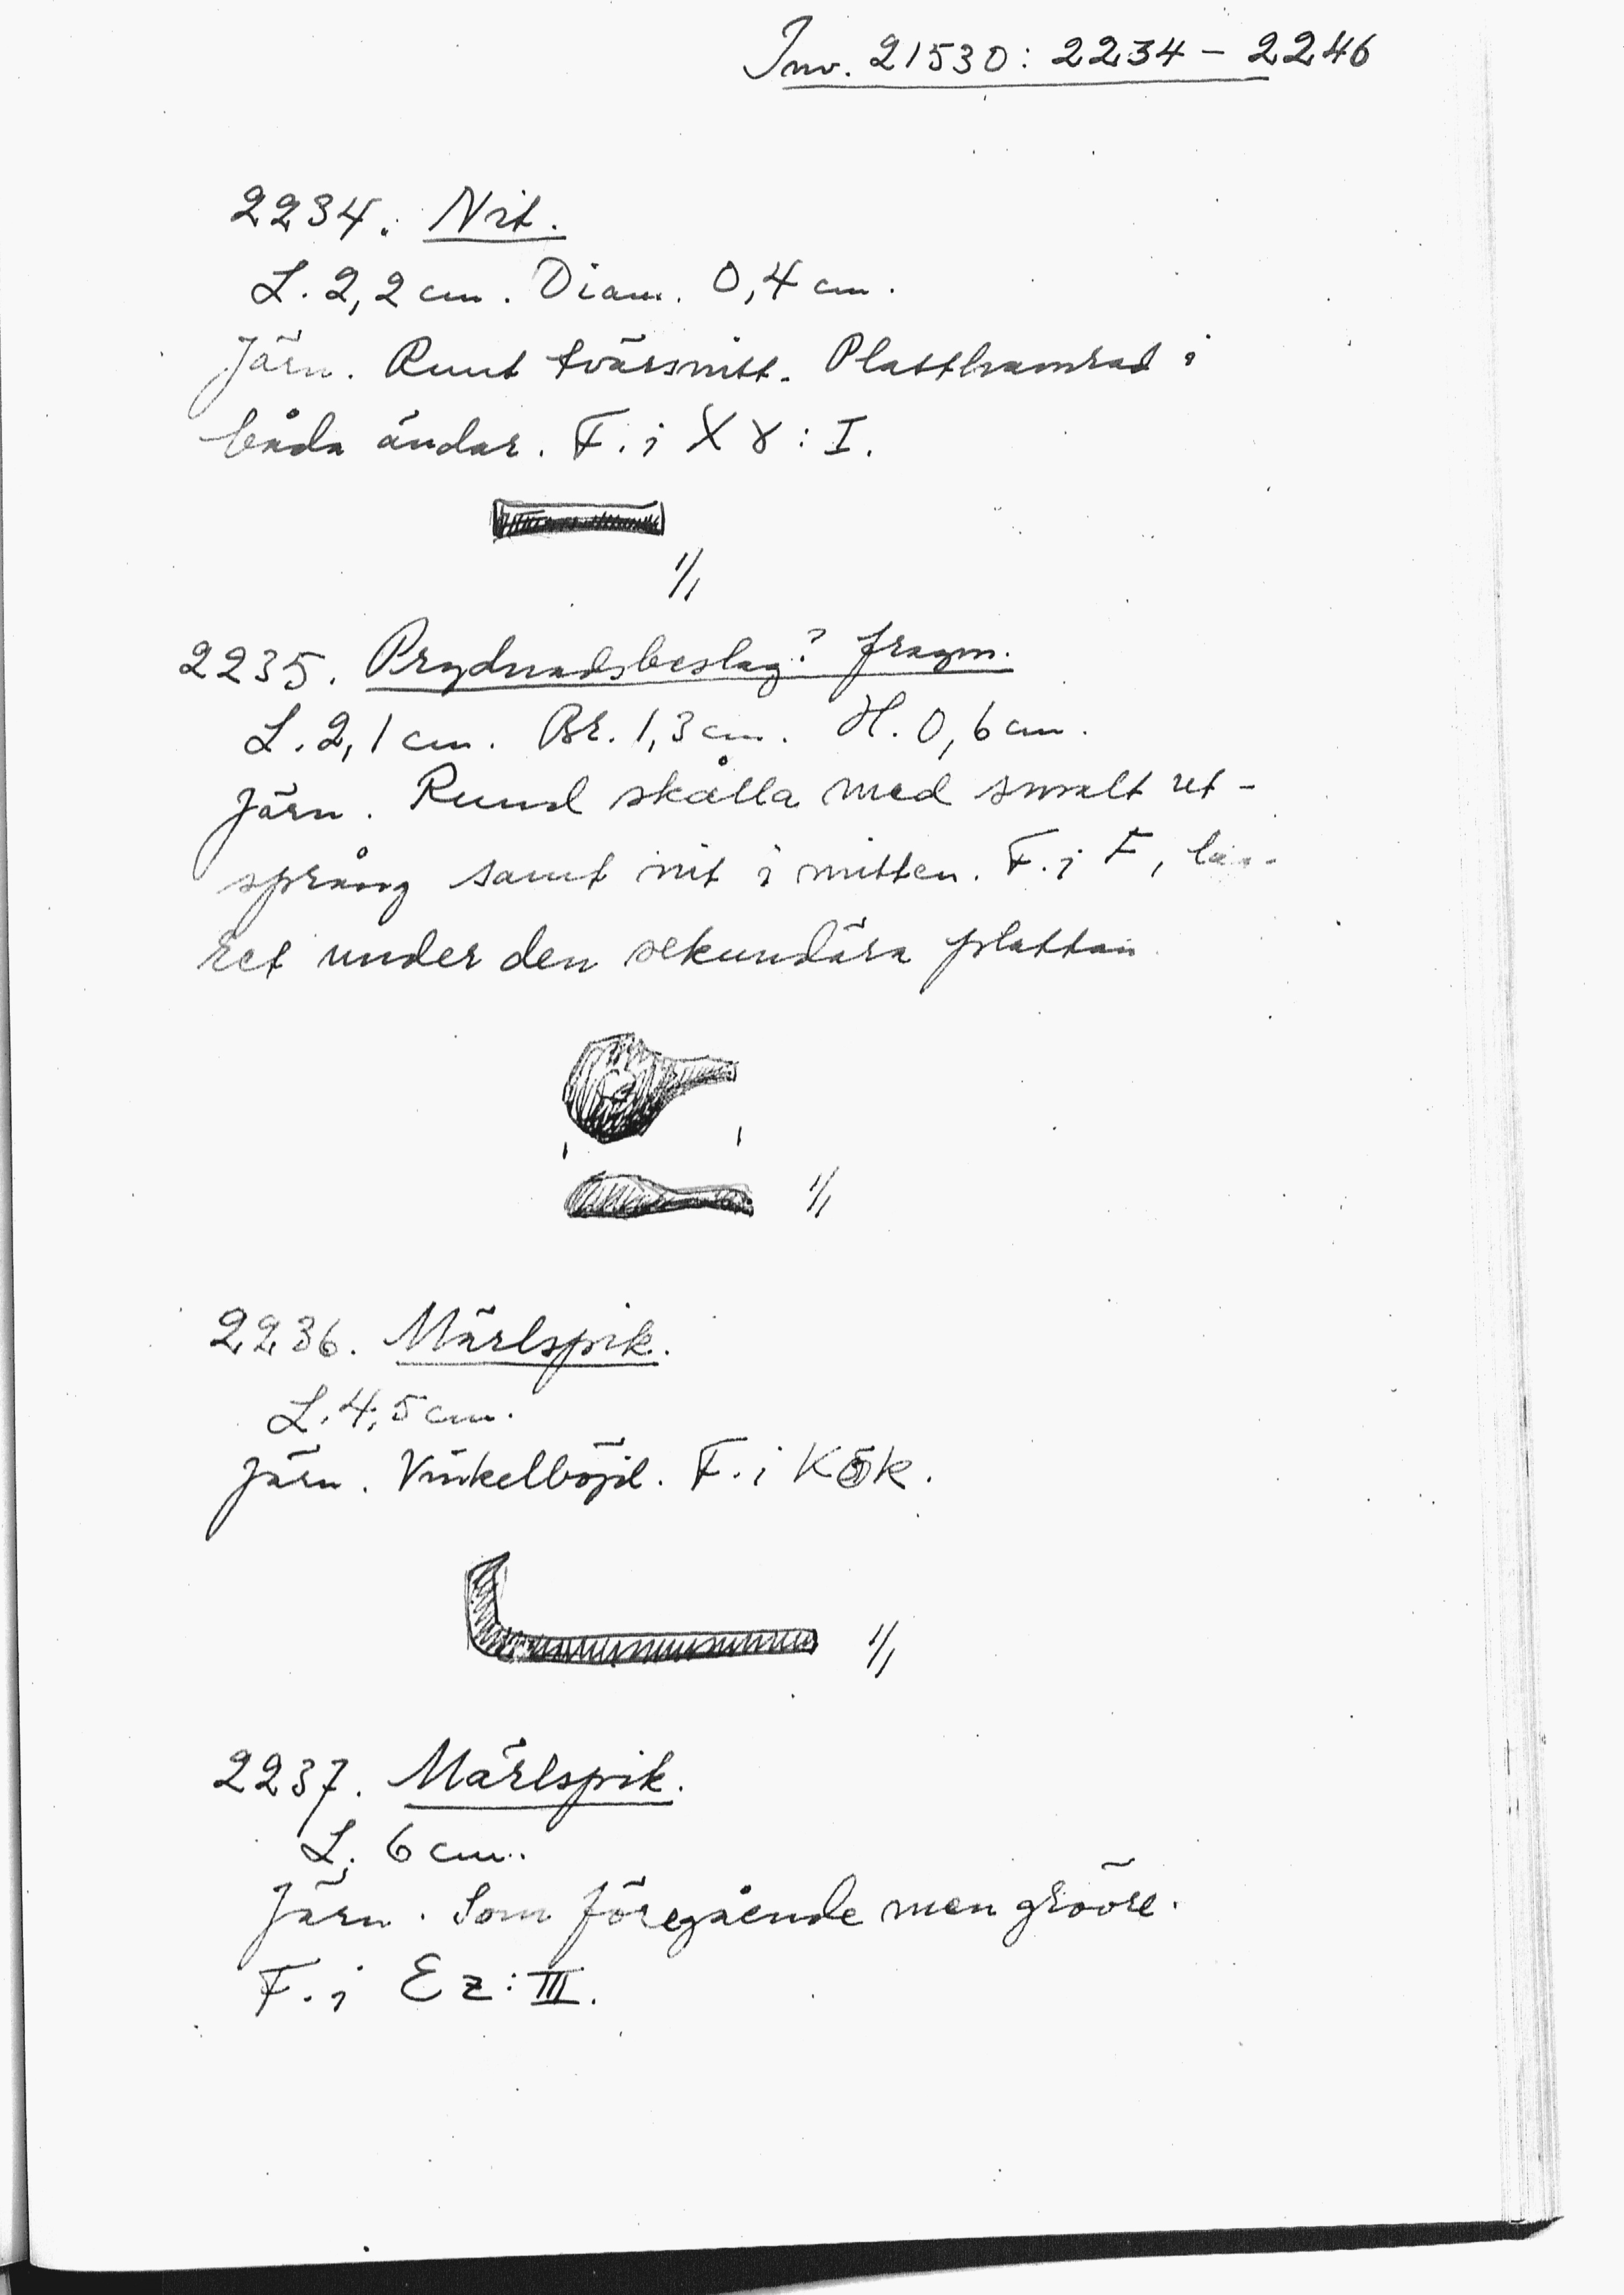 Inv. 21530: 2234 - 2246
2234. Nit.
L. 2,2 cm. Diam. 0,4 cm.
Järn. Runt tvärsnitt. Platthamrad i
båda ändar. F. i X γ : I.
1/1
2235. Prydnadsbeslag? fragm.
L. 2,1 cm. Br. 1,3 cm. H. 0,6 cm.
Järn. Rund skålla med smalt ut-
språng samt nit i mitten. F. i F,
ret under den sekundära plattan
1/1
2236. Märlspik.
L. 4,5 cm.
Järn. Vinkelböjd. F. i KÖK.
1/1
2237. Märlspik.
L. 6 cm.
Järn. Som föregående men grövre.
F. i E z : III.